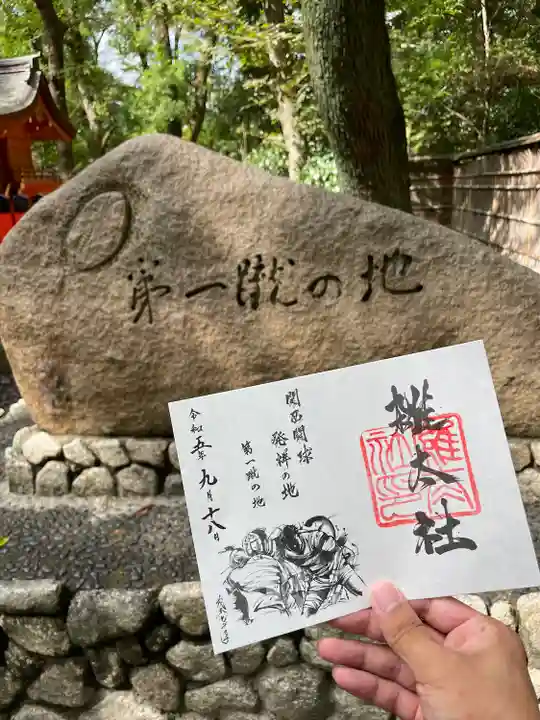 第一蹴の地
雑太社
関西闘球
発祥の地
第一蹴の地
令和五年九月十八日